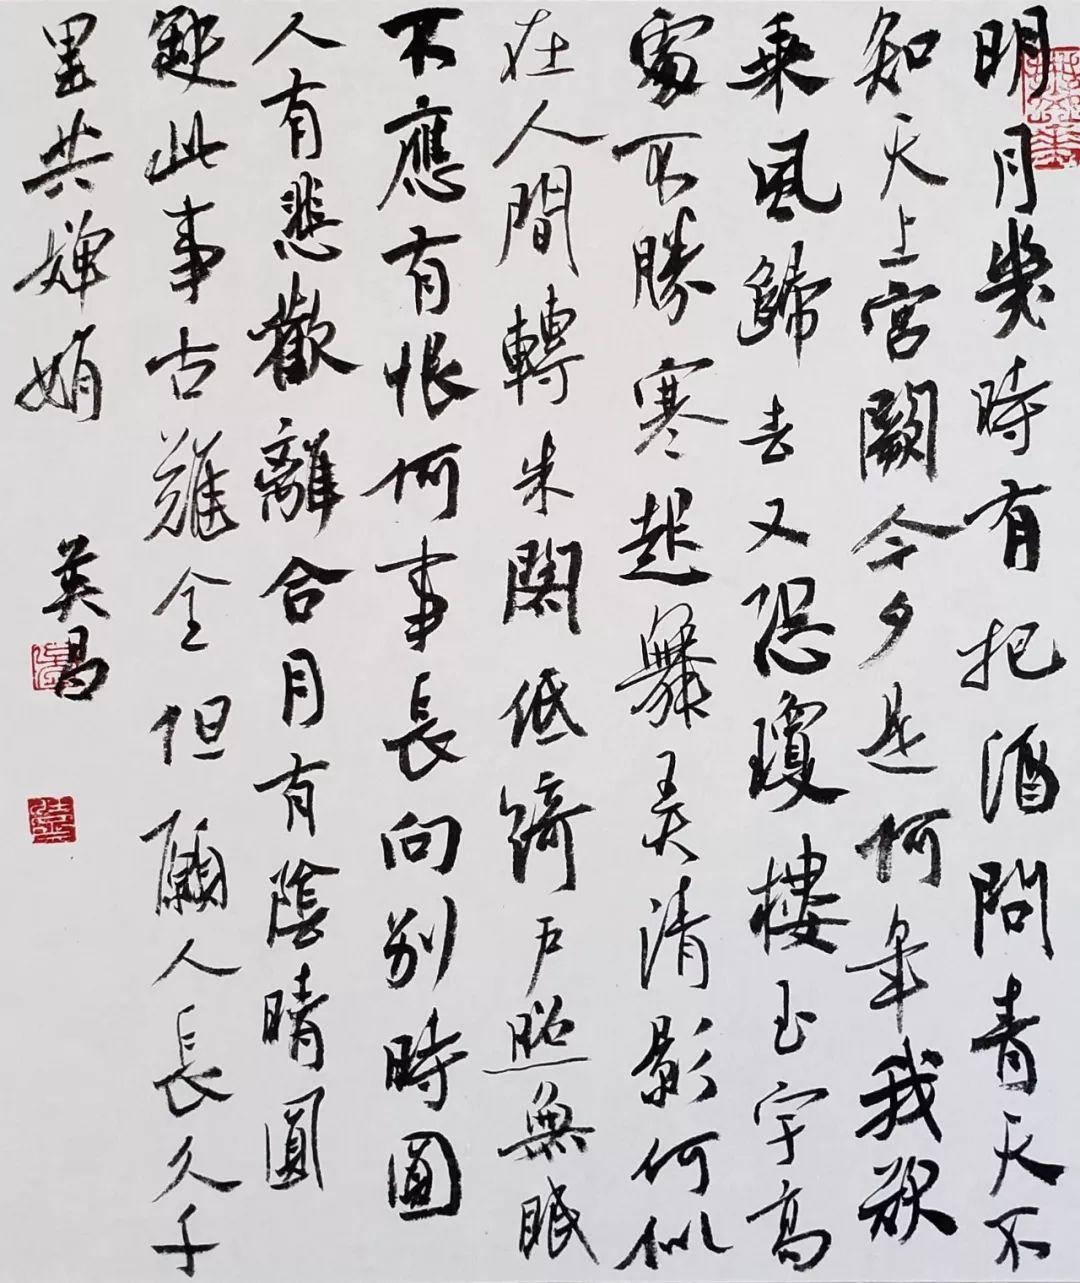 明月幾時有把酒問青天不
知天上宮闕今夕是何年我欲
乘風歸去又恐瓊樓玉宇高
處不勝寒起舞弄清影何似
在人間轉朱閣低綺戶照無眠
不應有恨何事長向別時圓
人有悲歡離合月有陰晴圓
缺此事古難全但願人長久千
里共嬋娟 英昌